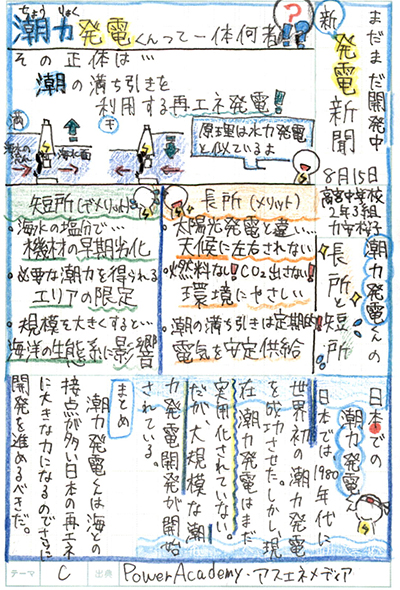 まだまだ開発中
新発電新聞
8月15日
2年3組
ちょう りょく
潮力発電くんって一体何者!!
?
その正体は…
潮の満ち引きを
利用する再エネ発電!!
満
干
海水面
原理は水力発電
と似ているよ
潮力発電くんの
長所と短所
長所(メリット)
・太陽光発電と違い…
天候に左右されない
・燃料なし!CO2出さない!
環境にやさしい
・潮の満ち引きは定期的!
電気を安定供給
短所(デメリット)
・海水の塩分で…
機材の早期劣化
・必要な潮力を得られる
エリアの限定
・規模を大きくすると…
海洋の生態系に影響
日本での
潮力発電
日本では1980年代に
世界初の潮力発電
を成功させた。しかし、現
在潮力発電はまだ
実用化されていない。
だが大規模な潮
力発電開発が開始
されている。
まとめ
潮力発電くんは海との
接点が多い日本の再エネ
に大きな力になるのでさらに
開発を進めるべきだ。
テーマ
C
出典
PowerAcademy・アスエネメディア